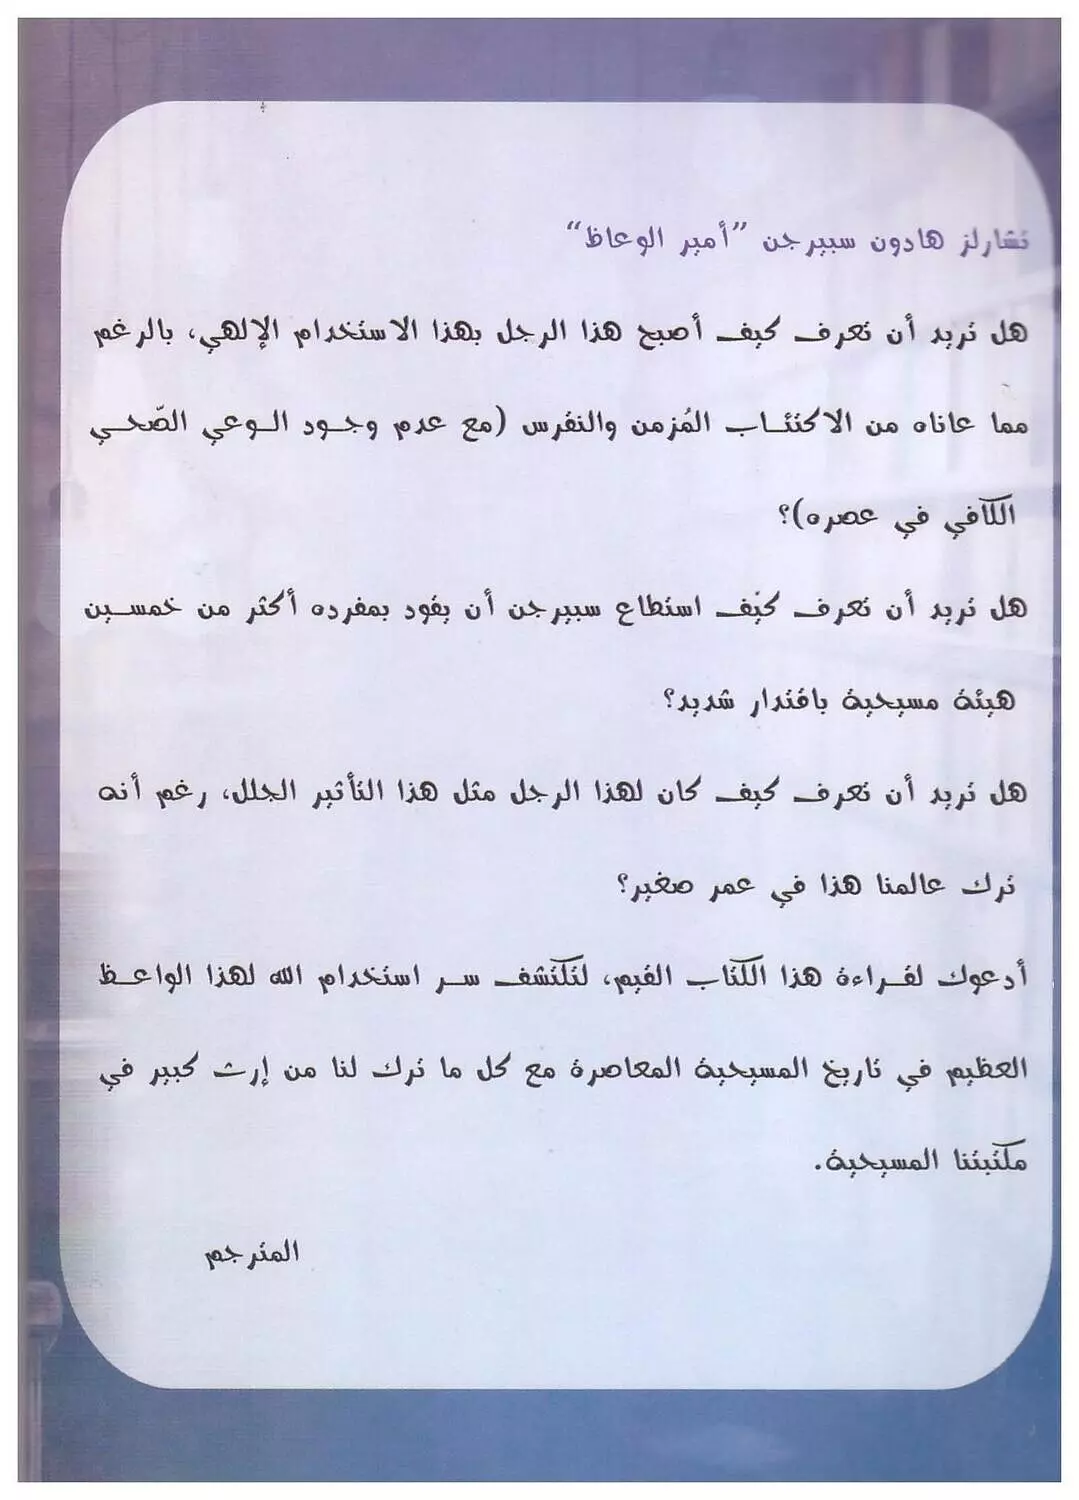 تشارلز هادون سبيرجن "أمير الوعاظ"
هل تريد أن تعرف كيف أصبح هذا الرجل بهذا الاستخدام الإلهي، بالرغم
مما عاناه من الاكتئاب المُزمن والنقرس (مع عدم وجود الوعي الصّحي
الكافي في عصره)؟
هل تريد أن تعرف كيف استطاع سبيرجن أن يقود بمفرده أكثر من خمسين
هيئة مسيحية باقتدار شديد؟
هل تريد أن تعرف كيف كان لهذا الرجل مثل هذا التأثير الجلل، رغم أنه
ترك عالمنا هذا في عمر صغير؟
أدعوك لقراءة هذا الكتاب القيم، لتكتشف سر استخدام الله لهذا الواعظ
العظيم في تاريخ المسيحية المعاصرة مع كل ما ترك لنا من إرث كبير في
مكتبتنا المسيحية.
المترجم